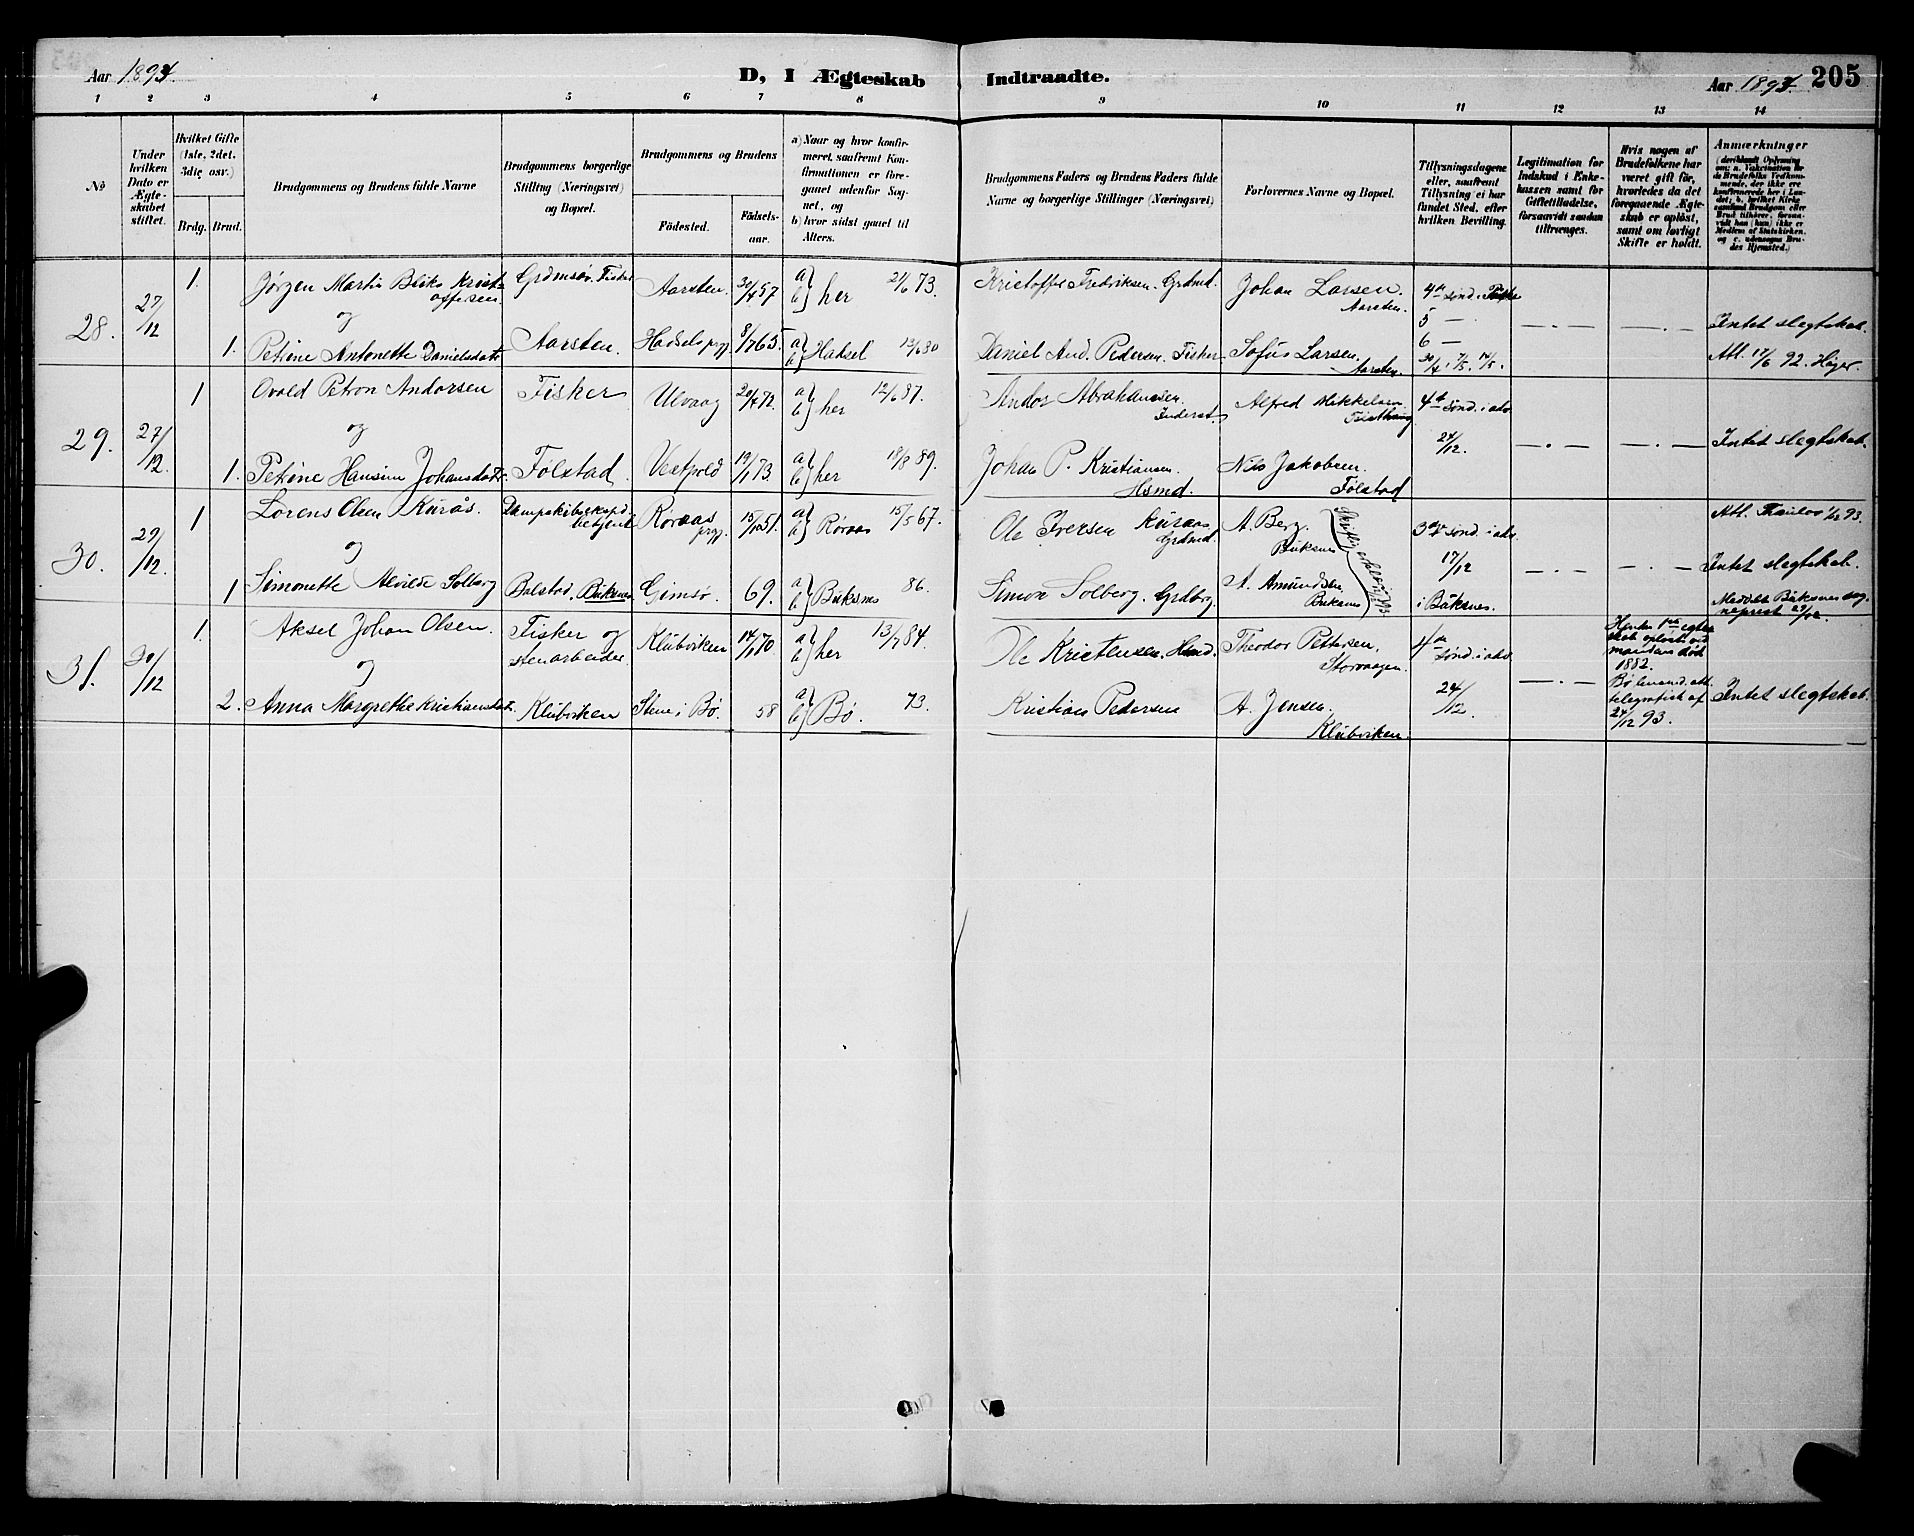 Aar 1893.
D, I Ægteskab
Indtraadte.
Aar 1893.
205
1 2 3 4 5 6 7 8 9 10 11 12 13 14
No
Under hvilken Dato er Ægteskabet stiftet.
Hvilket Gifte (1ste, 2det, 3die osv.)
Brdg.
Brud.
Brudgommens og Brudens fulde Navne
Brudgommens borgerlige Stilling (Næringsvei) og Bopæl.
Brudgommens og Brudens
Födested.
Födselsaar.
a) Naar og hvor konfirmeret, saafremt Konfirmationen er foregaaet udenfor Sognet, og
b) hvor sidst gaaet til Alters.
Brudgommens Faders og Brudens Faders fulde Navne og borgerlige Stillinger (Næringsvei)
Forlovernes Navne og Bopæl.
Tillysningsdagene eller, saafremt Tillysning ei har fundet Sted, efter hvilken Bevilling.
Legitimation for Indskud i Enkekassen samt for Giftetilladelse, forsaavidt saadan tiltrænges.
Hvis nogen af Brudefolkene har været gift för, hvorledes da det foregaaende Ægteskab er oplöst, samt om lovligt Skifte er holdt.
Anmærkninger
28. 27/12 1. Jørgen Martin Bliks Kristoffersen Grdmsøn. Fisker Aarsten. 30/4 57 a) b) her 21/6 73. Kristoffer Fredriksen. Grdmd. Johan Larsen. Aarsten. 4de sønd. i Faste
og 5 —
1. Petrine Antonette Danielsdatr. Aarsten. Hadsels prgj. 8/7 65 a) b) Hadsel 13/6 80 Daniel And. Pedersen. Fisker Sofus Larsen. Aarsten. 6 — 30/4, 7/5, 14/5. —.— —.— Intet slegtskab.
Att. 17/6 92. Høyer.
29. 27/12. 1 Ovald Petron Andorsen Fisker Ulvaag 20/4 72. a) b) her 12/6 87. Andor Abrahamsen Alfred Mikkelsen 4de sønd. i adv
og 24/12. —.— —.— Intet slegtskab.
1. Petrine Hansine Johansdatr. Følstad. Vestpold 19/1 73. a) b) her 18/8 89. Johan P. Kristiansen. Hsmd. Nils Jakobsen. Følstad
30. 29/12. 1 Lorens Olsen Kurås. Røraas prgj. 15/10 51. a) b) Røraas 15/5 67. Ole Iversen Kuraas Grdmd. A. Berg. Buksnes 3die sønd. i adv
og 17/12 —.— —.— Intet slegtskab.
1 Simonette Alvilde Solberg Balstad. Buksnes Gimsø. 69. a) b) Buksnes 86. Simon Solberg. Grdbrg. A. Amundsen Buksnes i Buksnes. Meddelt Buksnes sogneprest 29/12.
31. 30/12 1. Aksel Johan Olsen. Fisker og stenarbeider Klubviken 14/1 70 a) b) her 13/7 84. Ole Kristensen. Hsmd. Theodor Pettersen, Storvaagen. 4de sønd. i adv Hendes 1ste egteskab opløst ved mandens død 1882.
og
2. Anna Margrethe Kristiansdat. Klubviken Stene i Bø. 58 a) b) Bø. 73. Kristian Pedersen A. Jensen. Klubviken. 24/12. —.— Bø lensmd. att. telegrafisk af 24/12 93. Intet slegtskab.